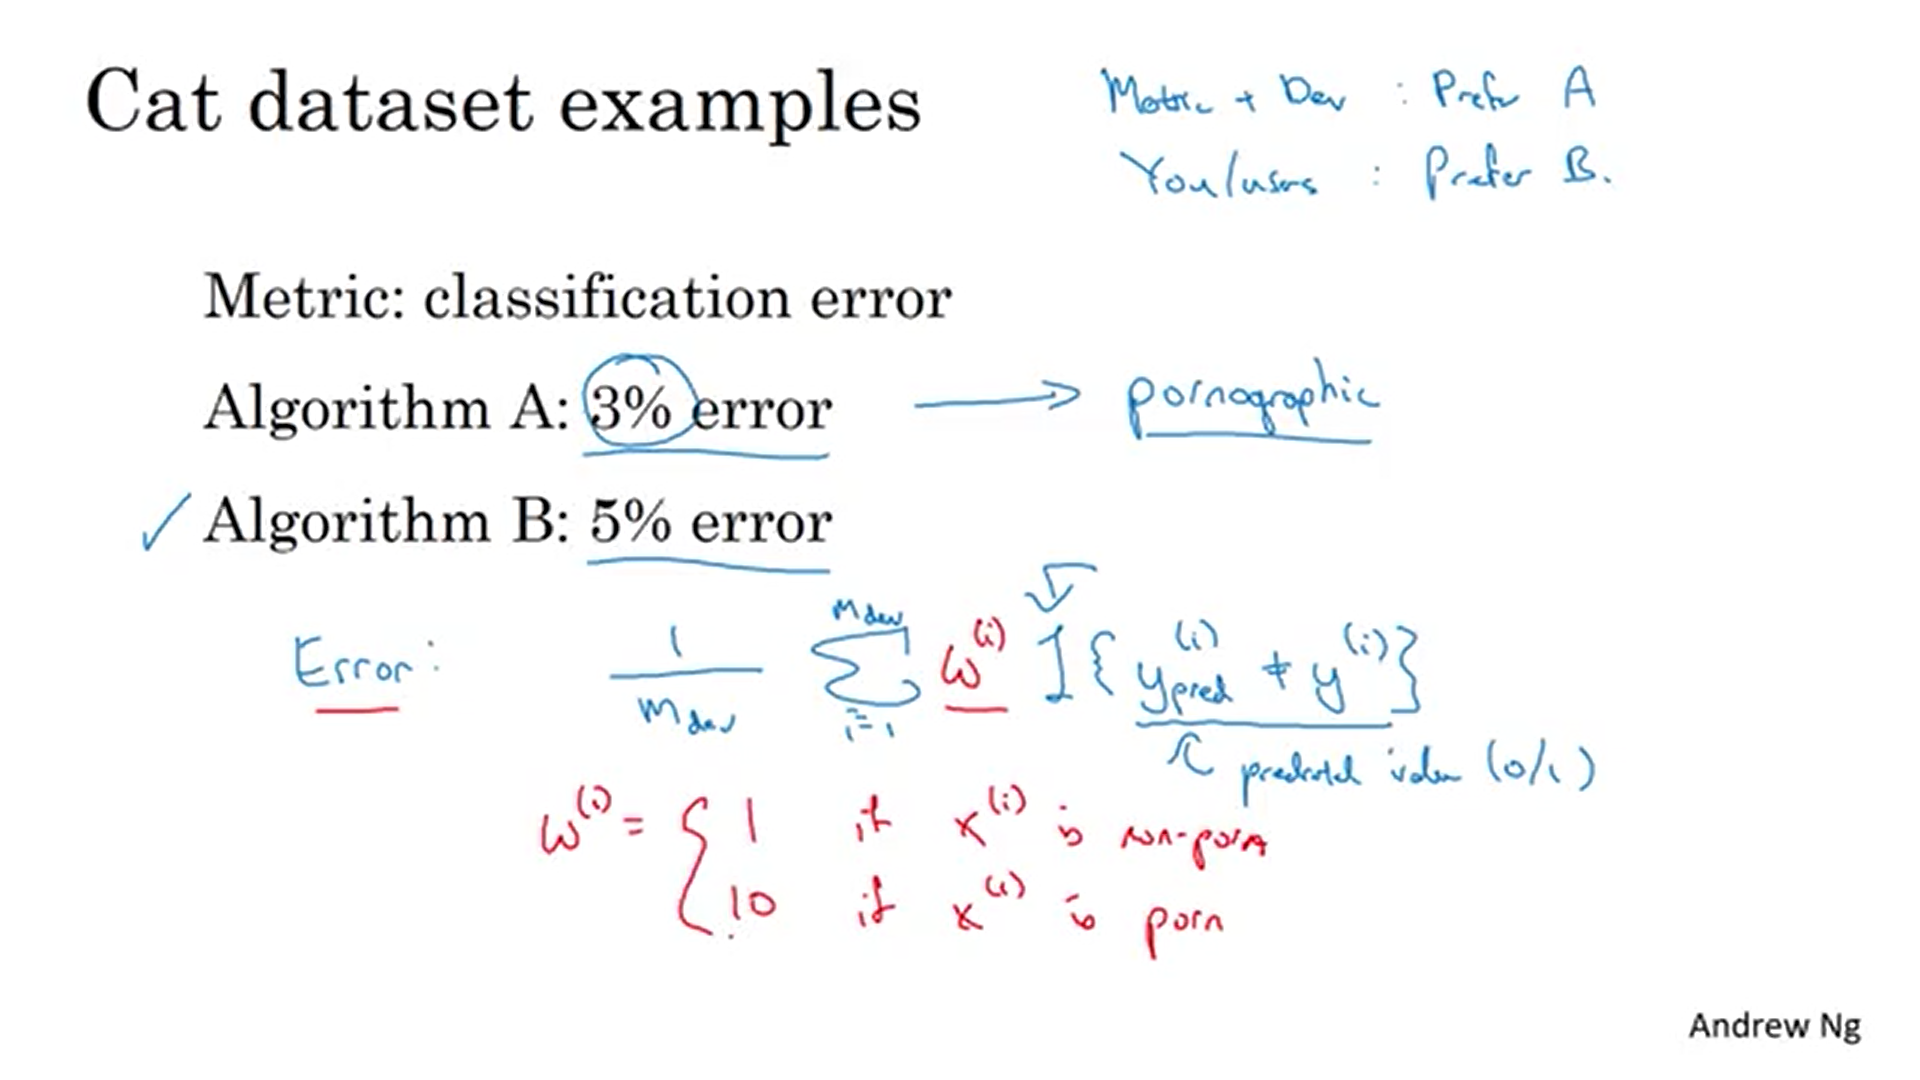 Cat dataset examples
Metric + Dev : Prefer A
You/users : Prefer B.
Metric: classification error
Algorithm A: 3% error → pornographic
✓ Algorithm B: 5% error
Error: 1/m_dev ∑_{i=1}^{m_dev} w^{(i)} I{y_pred^{(i)} ≠ y^{(i)}}
predicted value (0/1)
w^{(i)} = { 1 if x^{(i)} is non-porn
10 if x^{(i)} is porn
Andrew Ng